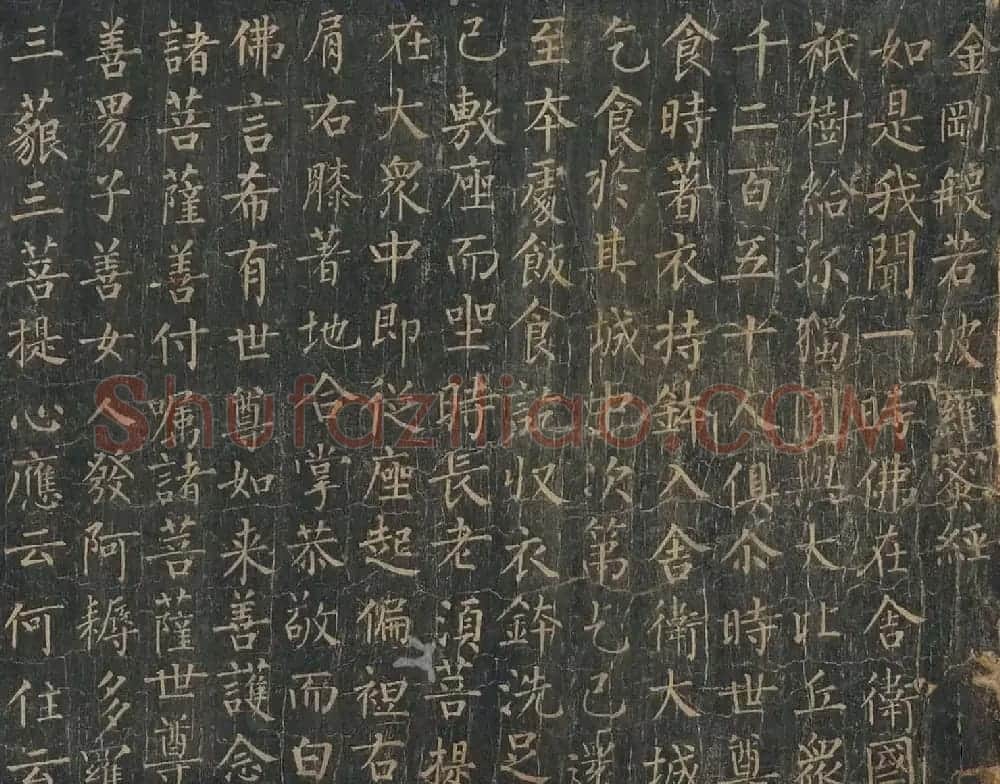 金剛般若波羅蜜經
如是我聞一時佛在舍衛國
祇樹給孤獨園與大比丘衆
千二百五十人俱尒時世尊
食時著衣持鉢入舍衛大城
乞食於其城中次第乞已還
至本處飯食訖収衣鉢洗足
已敷座而坐時長老須菩提
在大衆中即從座起偏袒右
肩右膝著地合掌恭敬而白
佛言希有世尊如来善護念
諸菩薩善付嘱諸菩薩世尊
善男子善女人發阿耨多羅
三藐三菩提心應云何住云
Shufaziliao.COM